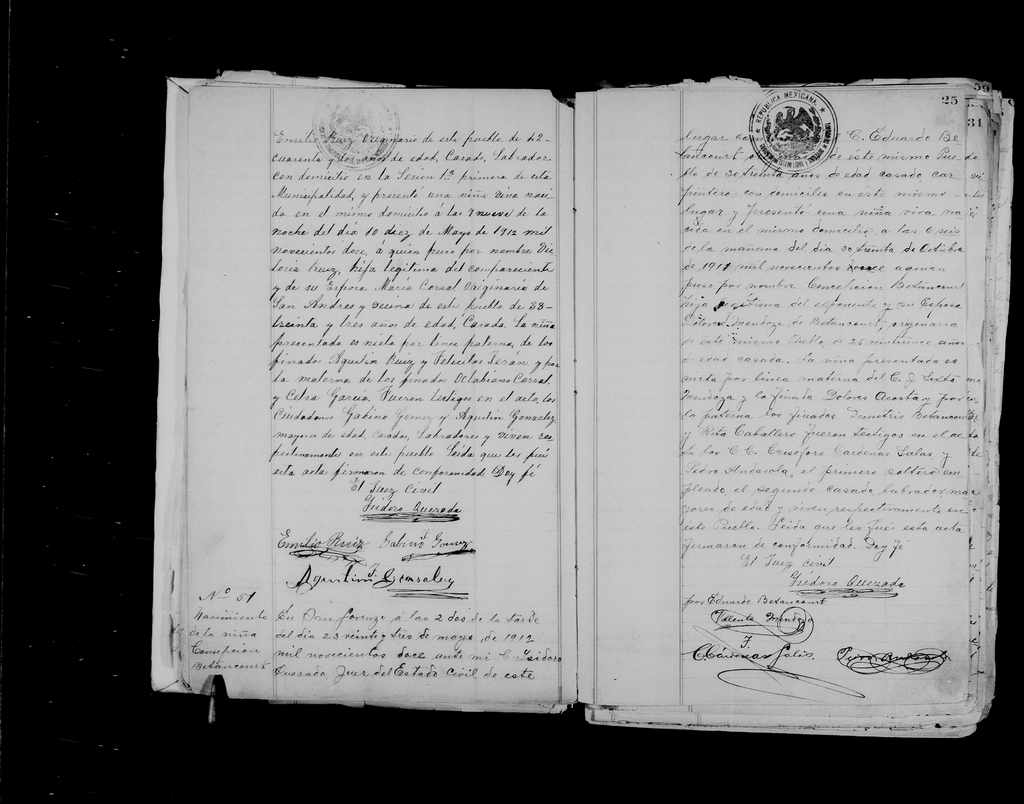 Emilio Ruiz originario de este pueblo de 42-
cuarenta y dos años de edad, Casado, Labrador
con domicilio en la Sección 1ª primera de esta
Municipalidad, y presentó una niña viva naci
da en el mismo domicilio á las 9 nueve de la
noche del día 10 diez de Mayo de 1912 mil
novecientos doce, á quien puso por nombre Vic
toria Ruiz, hija legítima del compareciente
y de su Esposa María Corral Originaria de
San Andres y vecina de este pueblo de 33-
treinta y tres años de edad, Casada. La niña
presentada es nieta por linea paterna, de los
finados Agustin Ruiz y Felicitas Terán y por
la materna de los finados Octabiano Corral
y Celsa Garcia. Fueron testigos en el acto, los
Ciudadanos Gabino Gomez y Agustin Gonzalez
mayores de edad, Casados, Labradores y viven res
pectivamente en este pueblo Leida que les fué
esta acta firmaron de conformidad. Doy fé
El Juez Civil
Isidoro Quezada
Emilio Ruiz Gabino Gomez
Agustin F. Gonzalez
Nº 51
Nacimiento
de la niña
Concepcion
Betancourt
En San Lorenzo a las 2 dos de la tarde
del dia 23 veinte y tres de mayo de 1912
mil novecientos doce ante mi C. Isidoro
Quezada Juez del Estado Civil de este
REPUBLICA MEXICANA
25
31
lugar C. Eduardo Be
tancourt de este mismo Pue
blo de 30 treinta años de edad casado car
pintero con domicilio en este mismo
lugar y presentó una niña viva na
cida en el mismo domicilio a las 6 seis
de la mañana del dia 30 treinta de Octubre
de 1911 mil novecientos once a quien
puso por nombre Concepcion Betancourt
hija legitima del exponente y su Esposa
Dolores Mendoza de Betancourt, originaria
de este mismo Pueblo de 26 años
de edad casada. La niña presentada es
nieta por linea materna del C. Sixto
Mendoza y la finada Dolores Acosta y por
la paterna los finados Demetrio Betancourt
y Rita Caballero fueron testigos en el acto
los C. C. Crisoforo Cardenas Salas y
Pedro Andasola, el primero soltero em
pleado el segundo casado labrador ma
yores de edad y viven respectivamente en
este Pueblo. Leida que les fué esta acta
firmaron de conformidad. Doy fé
El Juez civil
Isidoro Quezada
por Eduardo Betancourt
Mendoza
F.
C. Cárdenas Salas. Pedro Andasola